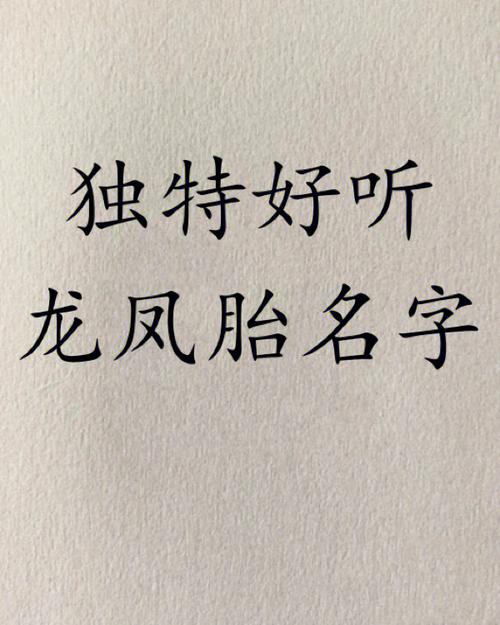 独特好听
龙凤胎名字